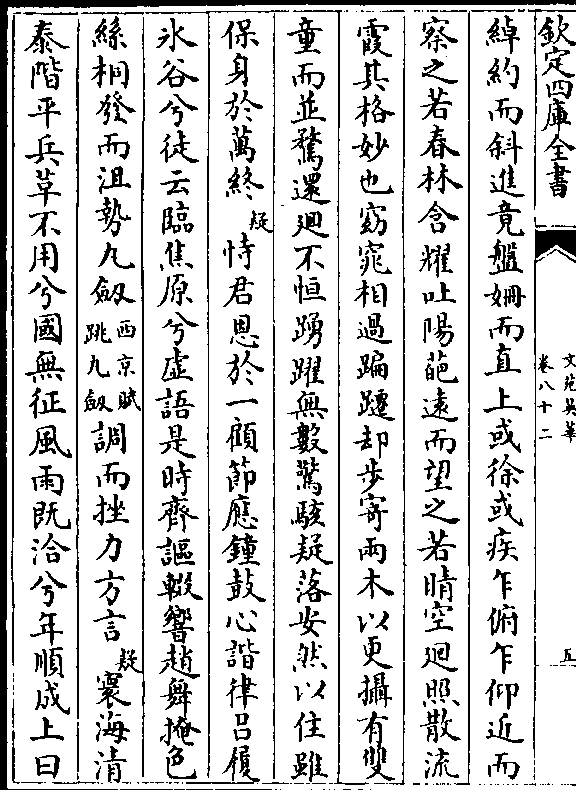 欽定四庫全書
文苑英華
卷八十二
五
綽約而斜進竟盤姍而直上或徐或疾乍俯乍仰近而
察之若春林含耀吐陽葩遠而望之若晴空迴照散流
霞其格妙也窈窕相過蹁躚却步寄兩木以更攝有雙
童而並騖還迴不恒踴躍無數驚駭疑落安然以住雖
保身於萬終疑恃君恩於一顧節應鐘鼓心諧律吕履
氷谷兮徒云臨焦原兮虚語是時齊謳輟響趙舞掩色
絲桐發而沮勢九劔西京賦跳九劔調而挫力方言疑寰海清
泰階平兵革不用兮國無征風雨既洽兮年順成上曰